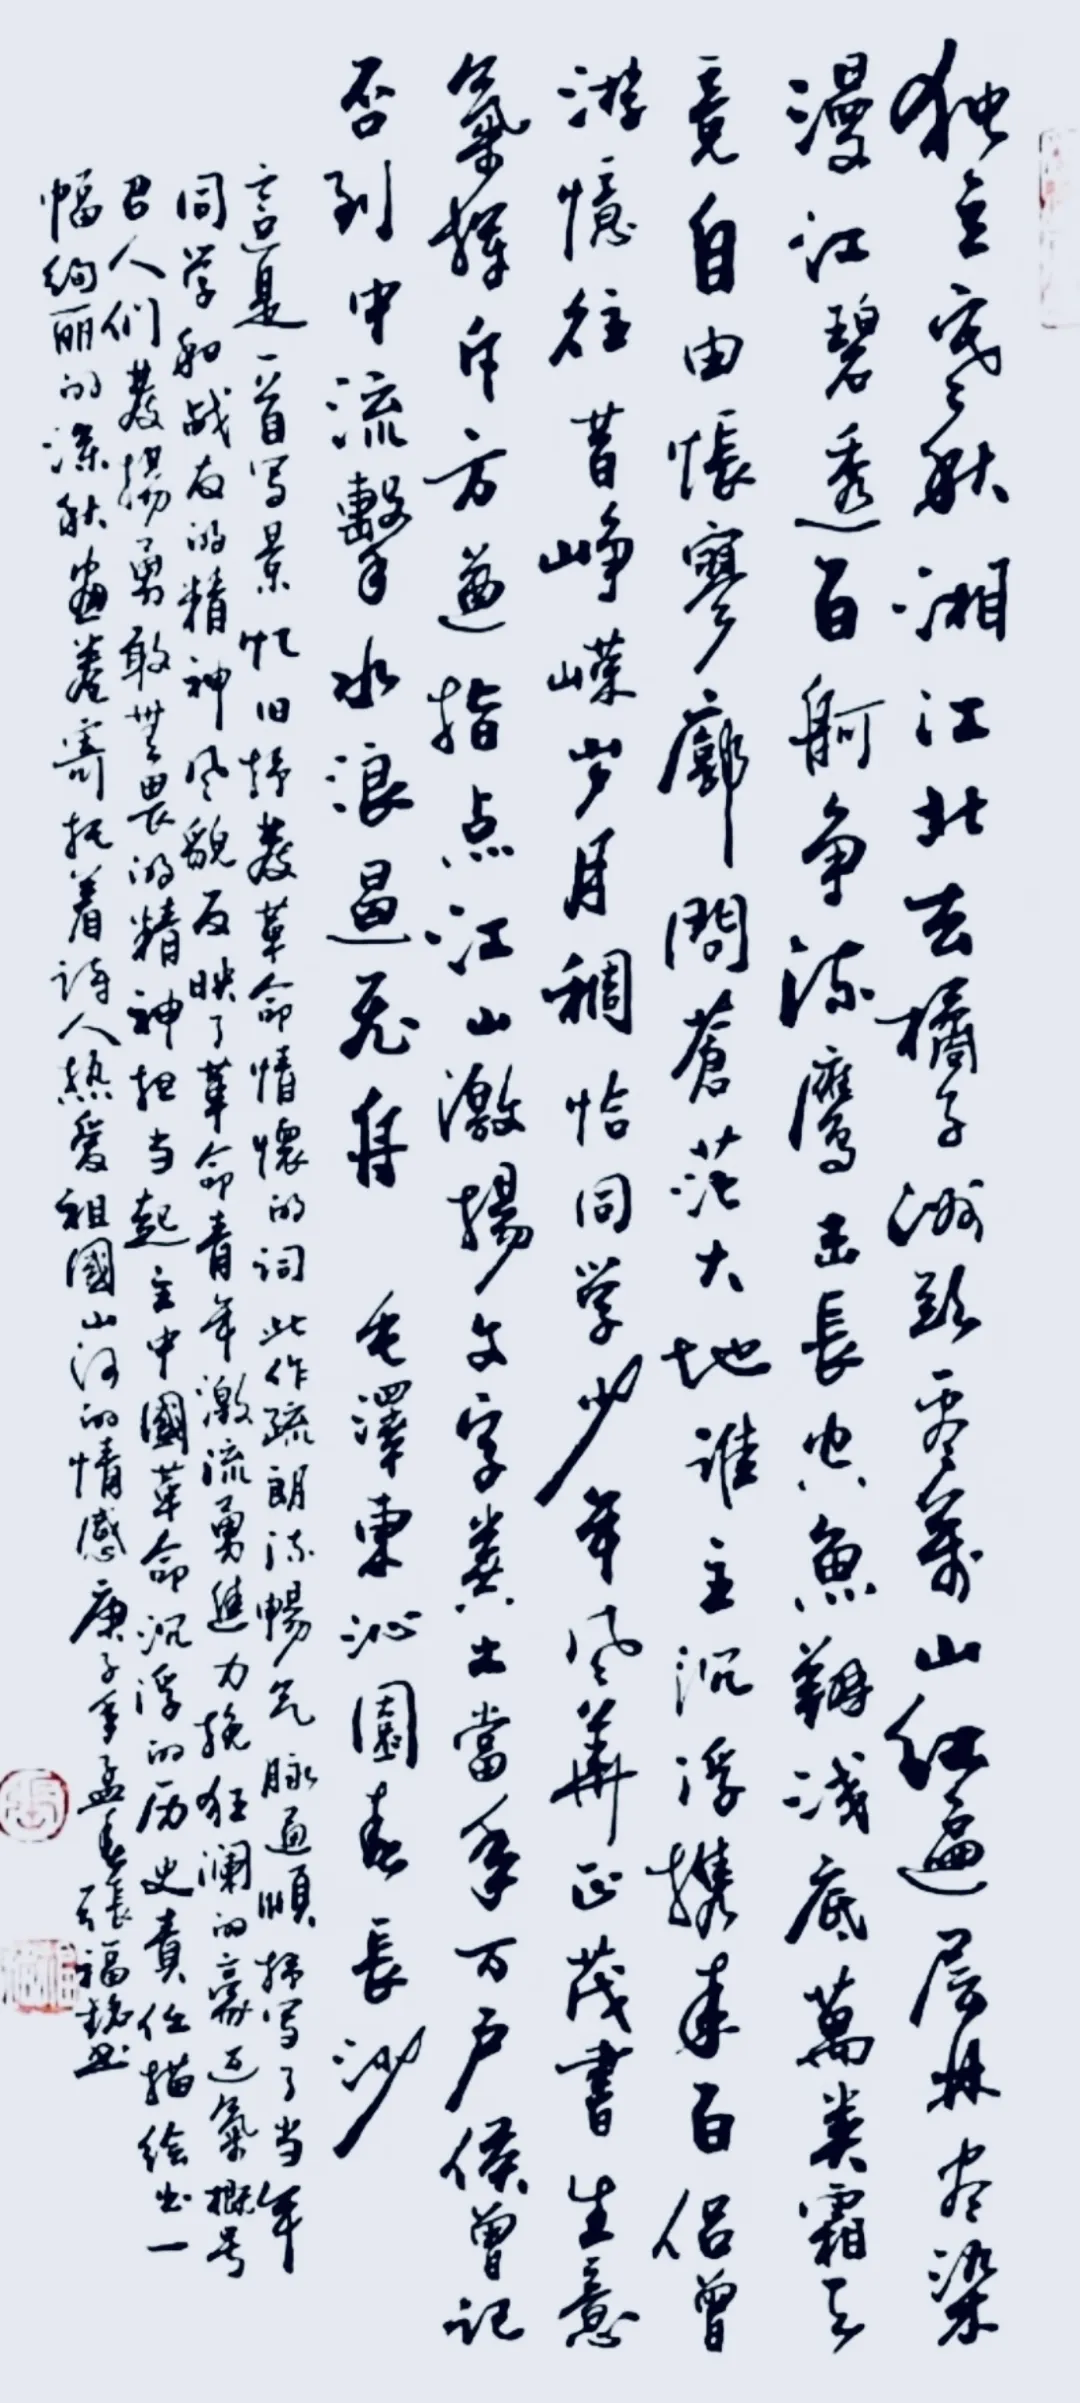 独立寒秋湘江北去橘子洲头看万山红遍层林尽染
漫江碧透百舸争流鹰击長空魚翔浅底萬类霜天
竞自由怅寥廓問蒼茫大地谁主沉浮携来百侣曾
游憶往昔峥嵘岁月稠恰同学少年风华正茂書生意
氣挥斥方遒指点江山激揚文字粪土當年万户侯曾记
否到中流擊水浪遏飛舟 毛澤東沁園春長沙
这是一首写景忆旧抒發革命情懷的词此作疏朗流暢气脉通順 描写了当年
同学和战友的精神风貌反映了革命青年激流勇進力挽狂澜的豪迈氣概号
召人们發揚勇敢無畏的精神担当起主中國革命沉浮的历史責任描绘出一
幅绚丽的深秋画卷寄托着诗人热爱祖國山河的情感庚子年孟春張福